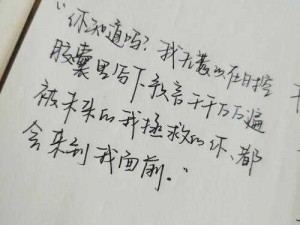 “你知道吗？我无数次在时空
胶囊里写下预言千千万万遍
被未来的我拯救的你、都
会来到我面前。”